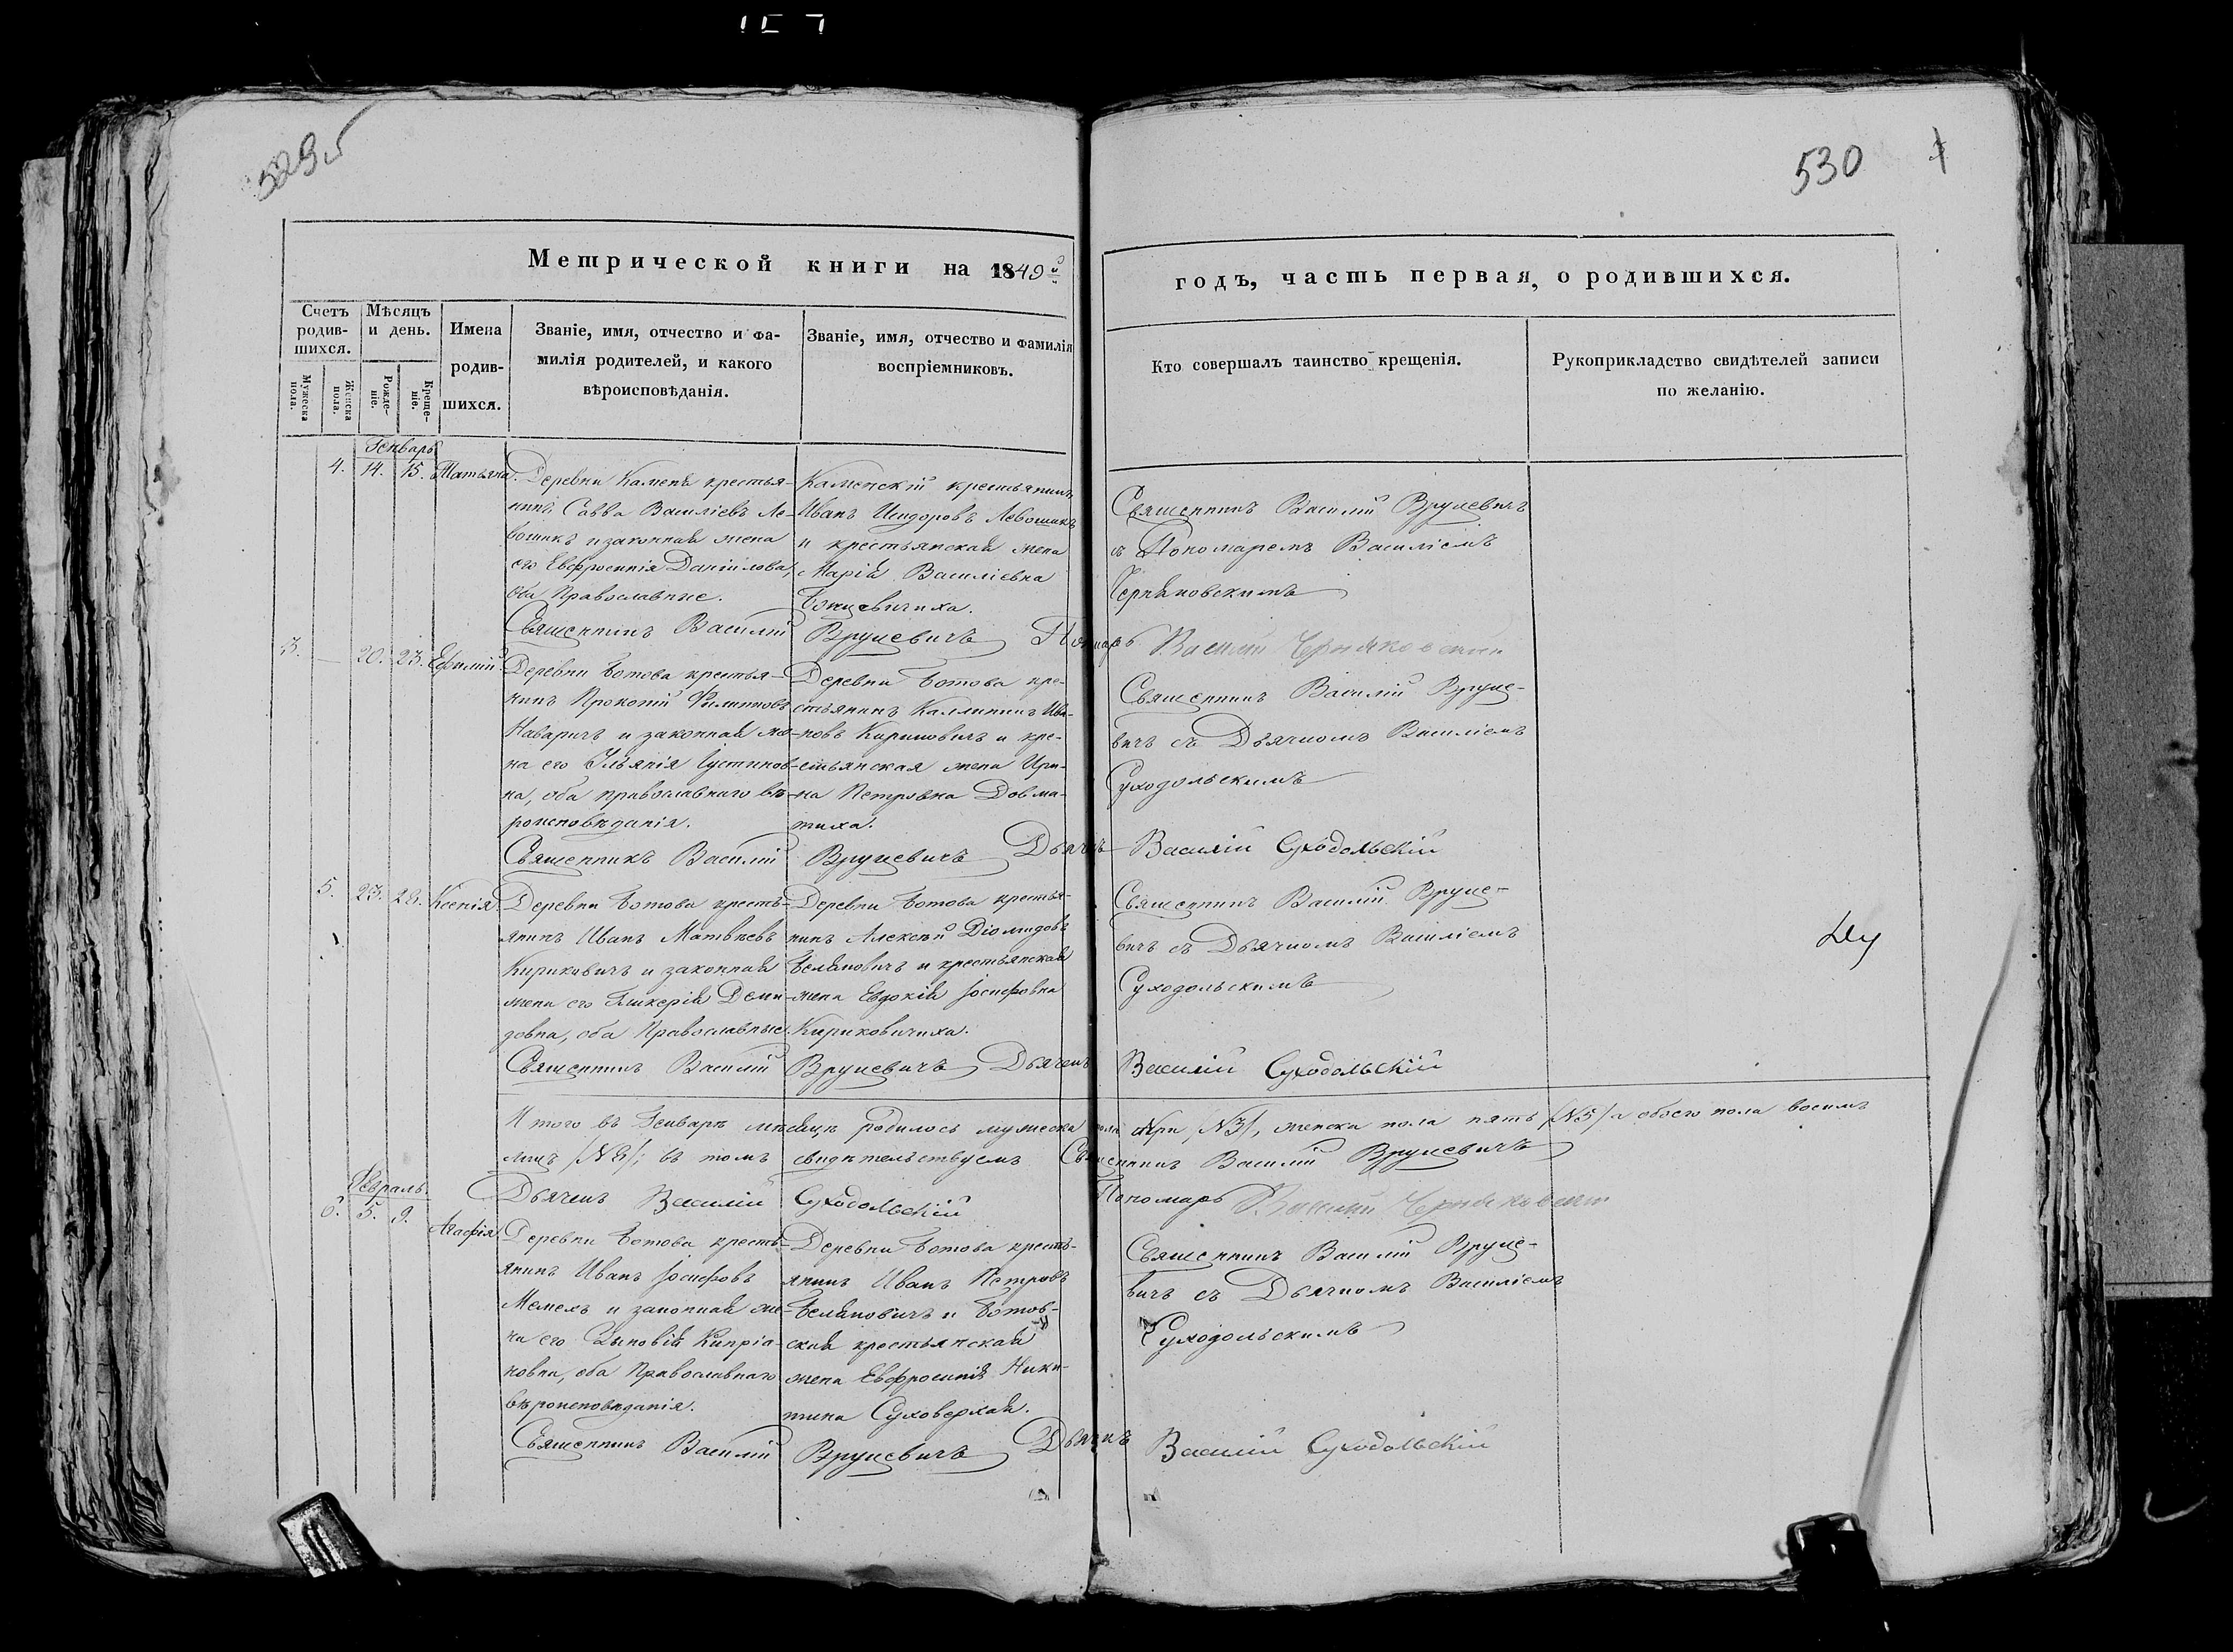 529 об
530
Метрической книги на 1849й
годъ, часть первая, о родившихся.
Счетъ родив-
шихся.
Мѣсяцъ
и день.
Имена
родив-
шихся.
Званіе, имя, отчество и фа-
милія родителей, и какого
вѣроисповѣданія.
Званіе, имя, отчество и фамилія
воспріемниковъ.
Кто совершалъ таинство крещенія.
Рукоприкладство свидѣтелей записи
по желанію.
Мужеска
пола.
Женска
пола.
Рожде-
ніе.
Креще-
ніе.
Генварь
4. 14. 15. Татьяна.
Деревни Каменя крестья-
нинъ Савва Василіевъ Ле-
вошикъ и законная жена
его Евфросинія Даніилова,
оба Православные.
Каменскій крестьянинъ
Иванъ Исидоровъ Левошикъ
и крестьянская жена
Марія Василіевна
Бонцевичиха.
Священникъ Василій Вруцевичъ
съ Пономаремъ Василіемъ
Черняковскимъ
Священникъ Василій Вруцевичъ Пономарь Василий Черняковский
3. — 20. 23. Ефимій
Деревни Ботова крестья-
нинъ Прокопій Филиповъ
Наваричъ и законная же-
на его Ульянія Іустинов-
на, оба православнаго вѣ-
роисповѣданія.
Деревни Ботова кре-
стьянинъ Каллиникъ Ива-
новъ Кириковичъ и кре-
стьянская жена Ири-
на Петровна Довма-
тиха.
Священникъ Василій Вруце-
вичъ съ Дьячкомъ Василіемъ
Суходольскимъ
Священникъ Василій Вруцевичъ Дьячекъ Василій Суходольскій
5. 23. 28. Ксенія.
Деревни Ботова кресть-
янинъ Иванъ Матвѣевъ
Кириковичъ и законная
жена его Гликерія Деми-
довна, оба Православные.
Деревни Ботова крестья-
нинъ Алексѣй Діомидовъ
Беляновичъ и крестьянская
жена Евдокія Іосифовна
Кириковичиха.
Священникъ Василій Вруце-
вичъ съ Дьячкомъ Василіемъ
Суходольскимъ
Священникъ Василій Вруцевичъ Дьячекъ Василій Суходольскій
Итого въ Генварѣ мѣсяцѣ родилось мужеска пола три /№3/, женска пола пять /№5/ а обоего пола восимъ
лицъ /№8/; въ томъ свидѣтельствуемъ Священникъ Василій Вруцевичъ
Дьячекъ Василій Суходольскій Пономарь Василий Черняковский
Февраль.
6. 5. 9. Агафія
Деревни Ботова кресть-
янинъ Иванъ Іосифовъ
Мемехъ и законная же-
на его Зыновія Кипріа-
новна, оба Православнаго
вѣроисповѣданія.
Деревни Ботова кресть-
янинъ Иванъ Петровъ
Беляновичъ и Ботов-
ская крестьянская
жена Евфросинія Ники-
тина Суховерхая.
Священникъ Василій Вруце-
вичъ съ Дьячкомъ Василіемъ
Суходольскимъ
Священникъ Василій Вруцевичъ Дьячекъ Василій Суходольскій